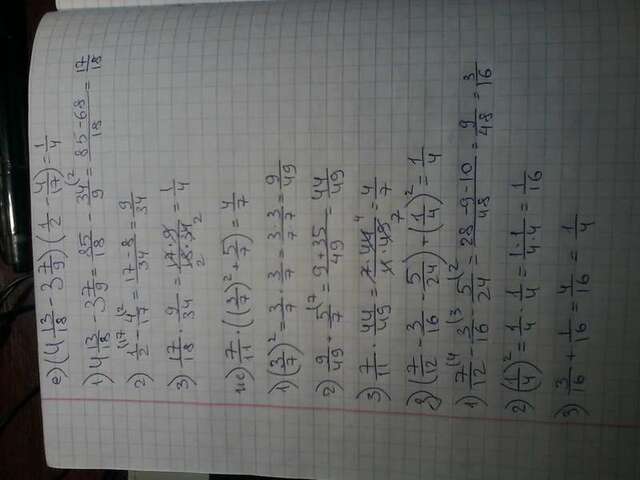 е) (4 13/18 - 3 7/9) (1/2 - 4/17) = 1/4
1) 4 13/18 - 3 7/9 = 85/18 - 34/9 (2 = 85-68/18 = 17/18
2) 1/2 (17 - 4/17 (2 = 17-8/34 = 9/34
3) 17/18 · 9/34 = 17·9/18·34 = 1/4
ж) 7/11 · ((3/7)² + 5/7) = 4/7
1) (3/7)² = 3/7 · 3/7 = 3·3/7·7 = 9/49
2) 9/49 + 5/7 (7 = 9+35/49 = 44/49
3) 7/11 · 44/49 = 7·44/11·49 = 4/7
з) (7/12 - 3/16 - 5/24) + (1/4)² = 1/4
1) 7/12 (4 - 3/16 (3 - 5/24 (2 = 28-9-10/48 = 9/48 = 3/16
2) (1/4)² = 1/4 · 1/4 = 1·1/4·4 = 1/16
3) 3/16 + 1/16 = 4/16 = 1/4